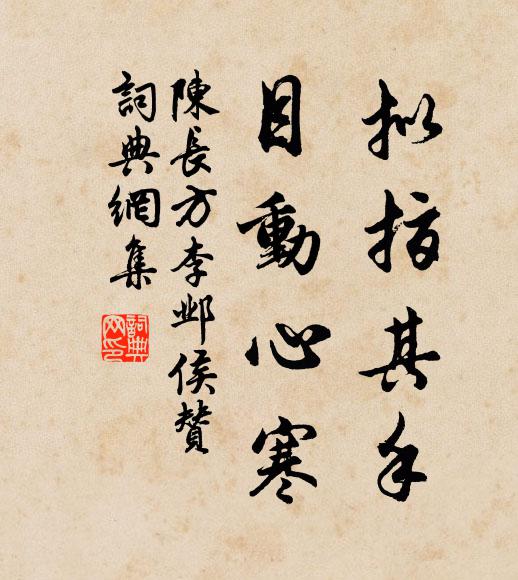 拟指其手
目動心寒
陳長方李鄴侯贊
詞典網集
詞典網印